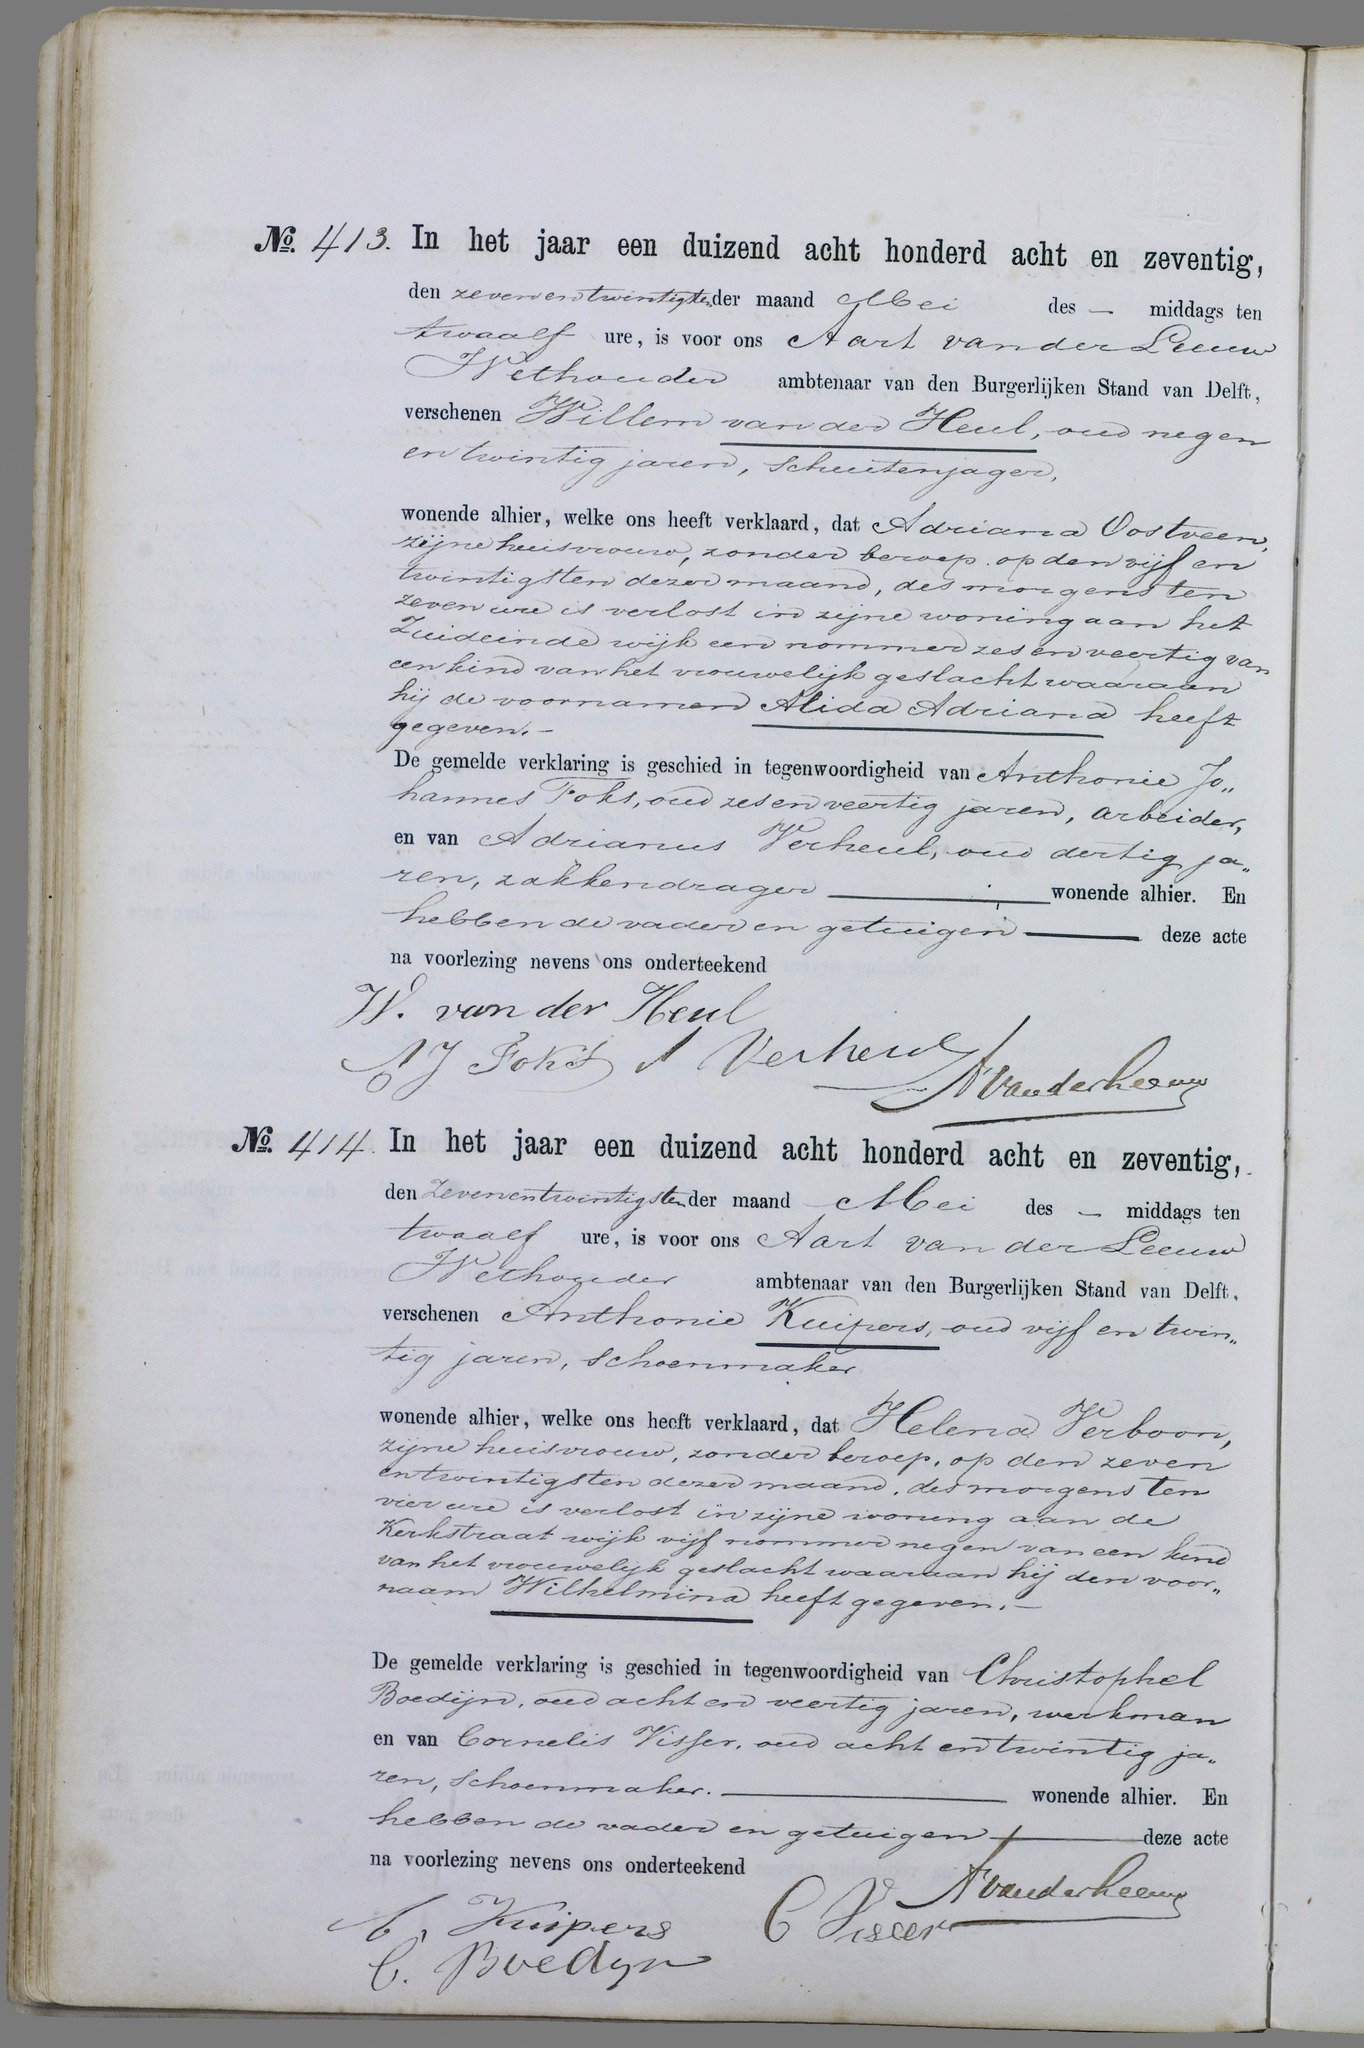 No. 413. In het jaar een duizend acht honderd acht en zeventig,
den zevenentwintigsten der maand Mei des — middags ten
twaalf ure, is voor ons Aart van der Leeuw
Wethouder ambtenaar van den Burgerlijken Stand van Delft,
verschenen Willem van der Heul, oud negen
en twintig jaren, schuitenjager,
wonende alhier, welke ons heeft verklaard, dat Adriana Oostveen,
zijne huisvrouw, zonder beroep, op den vijf en
twintigsten dezer maand, des morgens ten
zeven ure is verlost in zijne woning aan het
Zuideinde wijk een nommer zes en veertig van
een kind van het vrouwelijk geslacht waaraan
hij de voornamen Alida Adriana heeft
gegeven.—
De gemelde verklaring is geschied in tegenwoordigheid van Anthonie Jo„
hannes Foks, oud zes en veertig jaren, arbeider,
en van Adrianus Verheul, oud dertig ja„
ren, zakkendrager — wonende alhier. En
hebben de vader en getuigen — deze acte
na voorlezing nevens ons onderteekend
W. van der Heul
AJ Foks A Verheul
A vander Leeuw
No. 414. In het jaar een duizend acht honderd acht en zeventig,
den zevenentwintigsten der maand Mei des — middags ten
twaalf ure, is voor ons Aart van der Leeuw
Wethouder ambtenaar van den Burgerlijken Stand van Delft,
verschenen Anthonie Kuipers, oud vijf en twin„
tig jaren, schoenmaker
wonende alhier, welke ons heeft verklaard, dat Helena Verboon,
zijne huisvrouw, zonder beroep, op den zeven
en twintigsten dezer maand, des morgens ten
vier ure is verlost in zijne woning aan de
Kerkstraat wijk vijf nommer negen van een kind
van het vrouwelijk geslacht waaraan hij den voor„
naam Wilhelmina heeft gegeven.—
De gemelde verklaring is geschied in tegenwoordigheid van Christophel
Boedijn, oud acht en veertig jaren, werkman
en van Cornelis Visser, oud acht en twintig ja„
ren, schoenmaker. — wonende alhier. En
hebben de vader en getuigen — deze acte
na voorlezing nevens ons onderteekend
A vander Leeuw
A. Kuipers C Visser
C. Boedyn